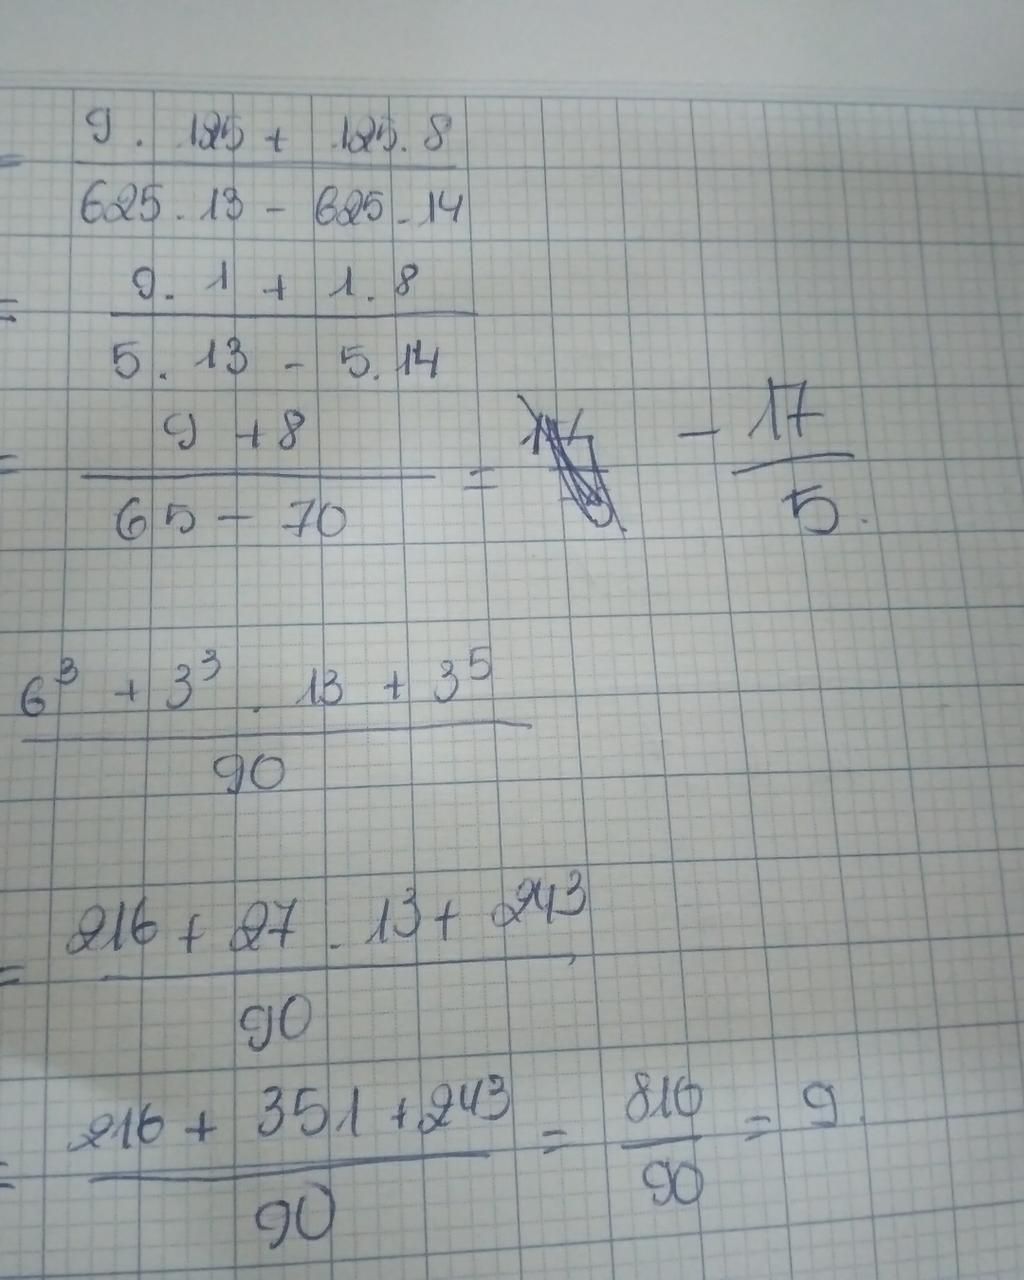 = 9 . 125 + 125 . 8
625 . 13 - 625 . 14
= 9 . 1 + 1 . 8
5 . 13 - 5 . 14
= 9 + 8
65 - 70
= - 17
5 .
6³ + 3³ . 13 + 3⁵
90
= 216 + 27 . 13 + 243
90
= 216 + 351 + 243
90
= 810
90
= 9 .